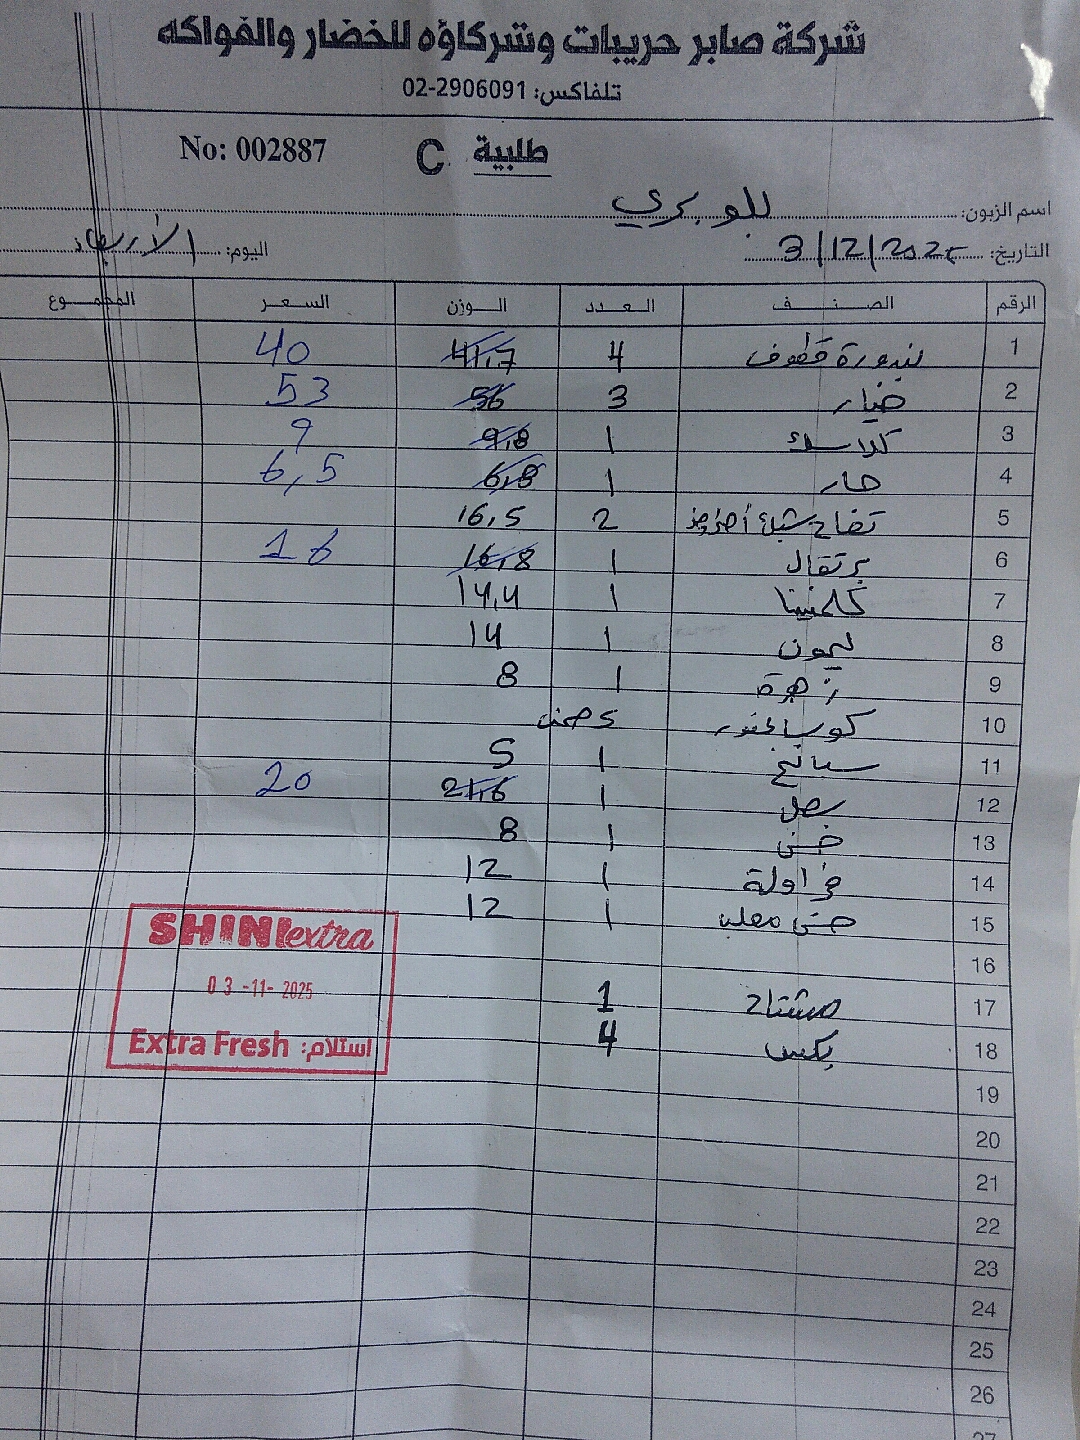 شركة صابر حريبات وشركاؤه للخضار والفواكه
تلفاكس: 02-2906091
طلبية C No: 002887
اسم الزبون: بلو بري
التاريخ: 3/12/2025 اليوم: الأربعاء
الرقم الصنف العدد الوزن السعر المجموع
1 بندورة قطوف 4 41,7 40
2 خيار 3 56 53
3 كلاسك 1 9,8 9
4 حار 1 6,8 6,5
5 تفاح 2 16,5
6 برتقال 1 16,8 16
7 كلمنتينا 1 14,4
8 ليمون 1 14
9 زهرة 1 8
10 كوسا
11 سبانخ 1 5
12 بصل 1 21,6 20
13 خس 1 8
14 فراولة 1 12
15 1 12
16
17 مشتاح 1
18 بكس 4
19
20
21
22
23
24
25
26
27
SHINI extra
03-11-2025
Extra Fresh استلام: